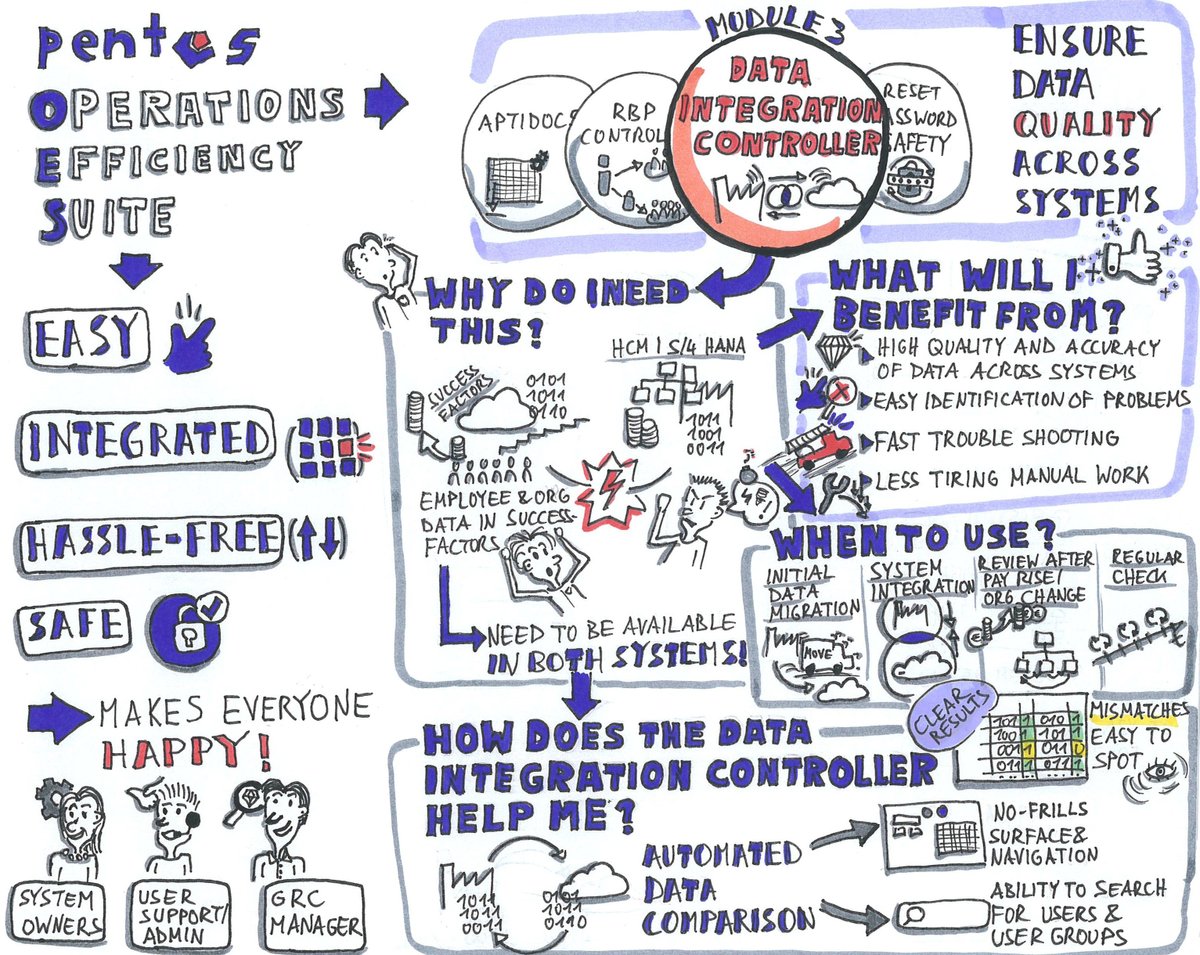 pentos
OPERATIONS
EFFICIENCY
SUITE
EASY
INTEGRATED
HASSLE-FREE
SAFE
MAKES EVERYONE
HAPPY!
SYSTEM
OWNERS
USER
SUPPORT/
ADMIN
GRC
MANAGER
MODULE 3
APTIDOCS
RBP
DATA
INTEGRATION
CONTROLLER
RESET
ENSURE
DATA
QUALITY
ACROSS
SYSTEMS
WHY DO I NEED
THIS?
SUCCESS
FACTORS
0101
1011
0110
HCM | S/4 HANA
1011
1001
0011
EMPLOYEE & ORG
DATA IN SUCCESS-
FACTORS
NEED TO BE AVAILABLE
IN BOTH SYSTEMS!
WHAT WILL I
BENEFIT FROM?
HIGH QUALITY AND ACCURACY
OF DATA ACROSS SYSTEMS
EASY IDENTIFICATION OF PROBLEMS
FAST TROUBLE SHOOTING
LESS TIRING MANUAL WORK
WHEN TO USE?
INITIAL
DATA
MIGRATION
MOVE
SYSTEM
INTEGRATION
REVIEW AFTER
PAY RISE/
ORG CHANGE
REGULAR
CHECK
HOW DOES THE DATA
INTEGRATION CONTROLLER
HELP ME?
CLEAR
RESULTS
101 1 010 1
100 1 101 1
001 1 011 0
011 1 011 1
MISMATCHES
EASY TO
SPOT
1011
1011
0011
0101
1011
0110
AUTOMATED
DATA
COMPARISON
NO-FRILLS
SURFACE &
NAVIGATION
ABILITY TO SEARCH
FOR USERS &
USER GROUPS